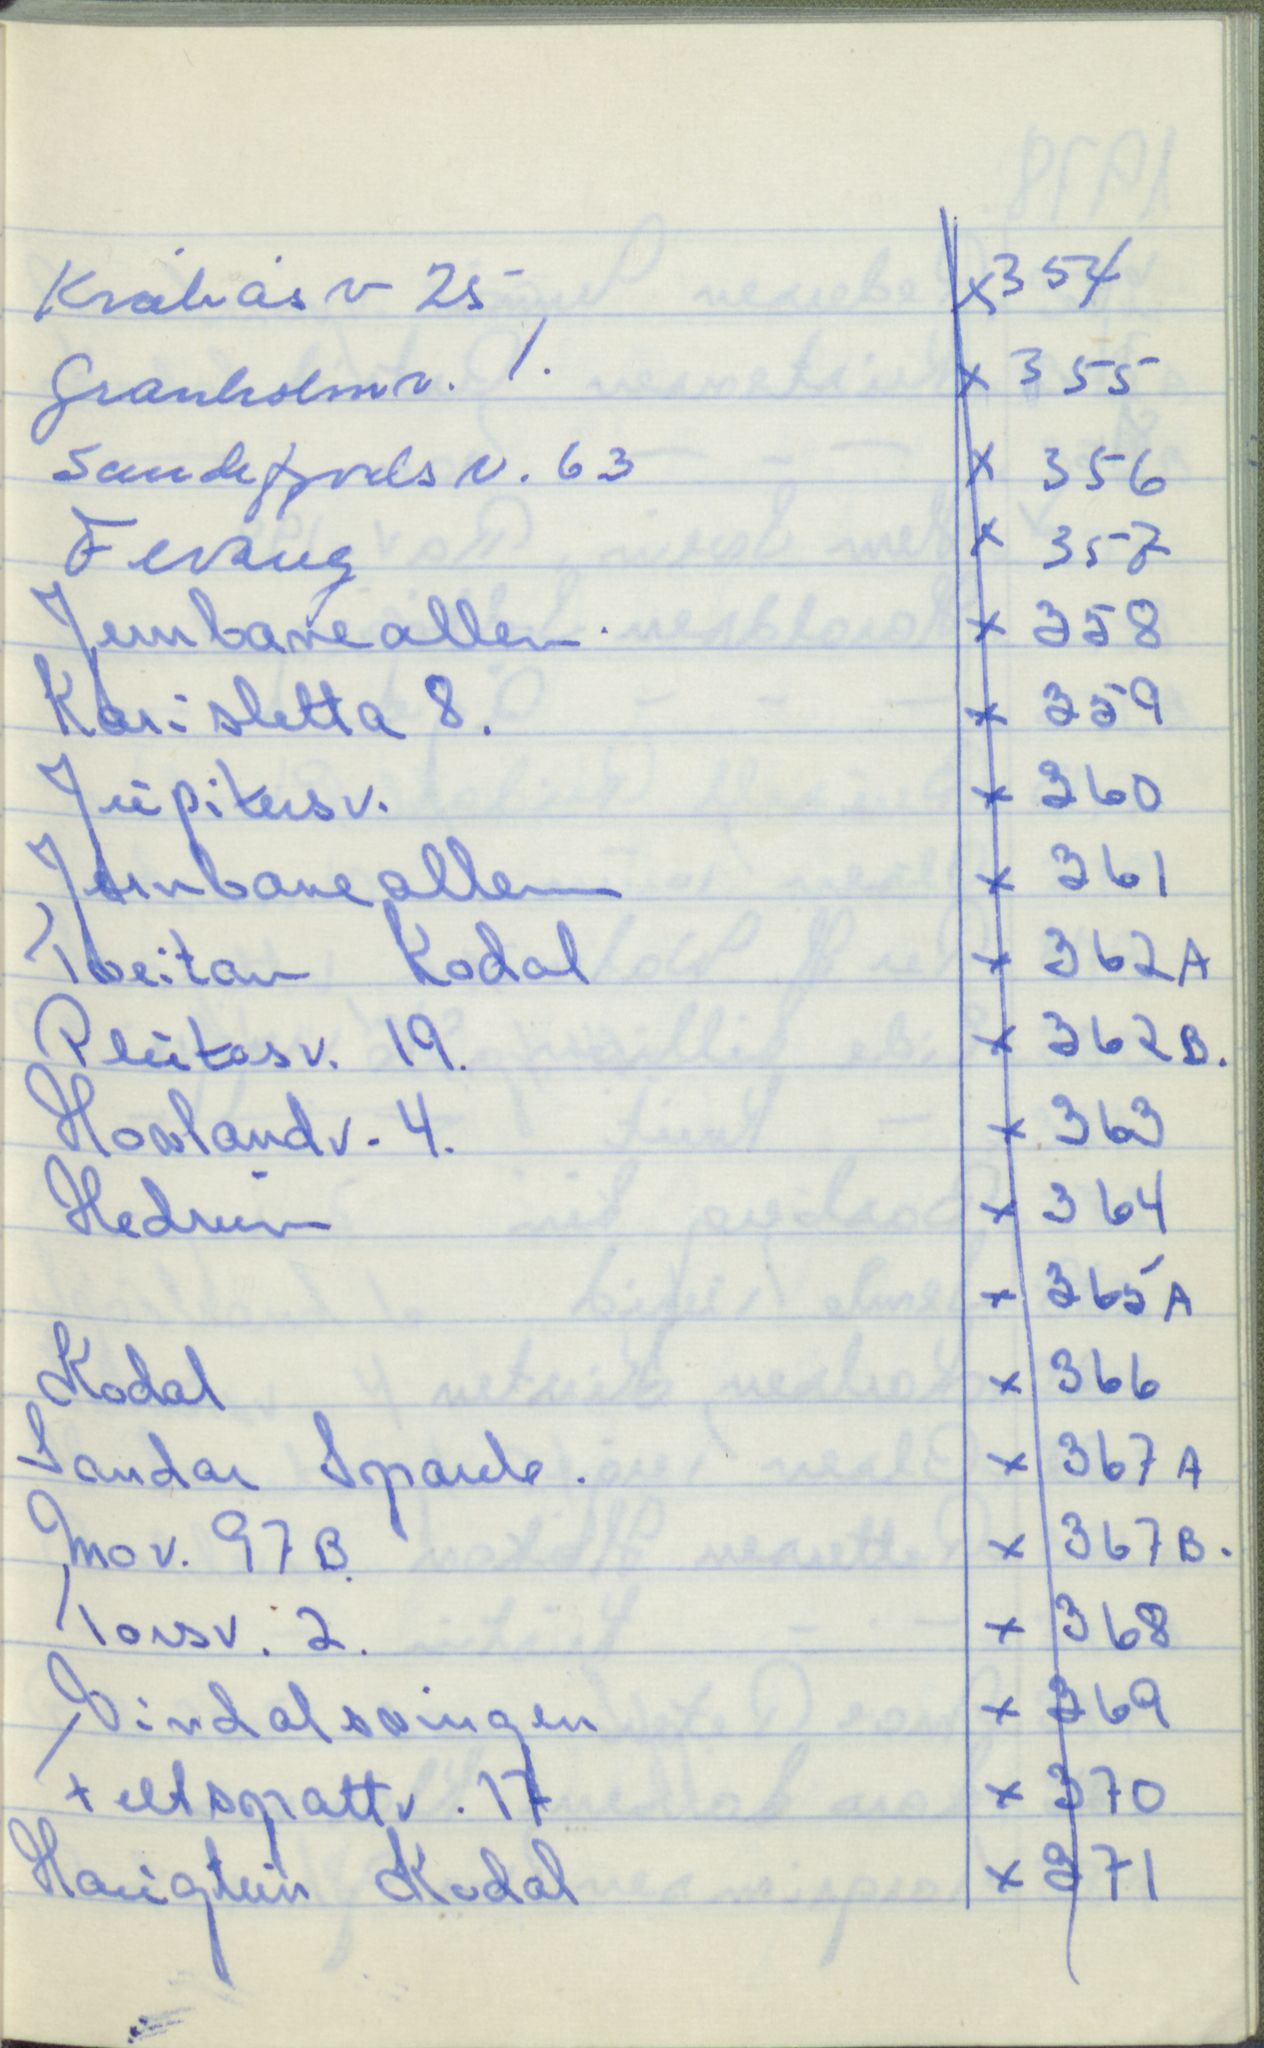 Kråkåsv 25 x 354
Granholmv. 1. x 355
Sandefjordsv. 63 x 356
Fevang x 357
Jernbanealleen. x 358
Karisletta 8. x 359
Jupitersv. x 360
Jernbanealleen x 361
Tveitan Kodal x 362A
Plutosv. 19. x 362B.
Hovlandv. 4. x 363
Hedrum x 364
x 365A
Kodal x 366
Sandar Spareb. x 367A
Mov. 97B. x 367B.
Torsv. 2. x 368
Vindalsvingen x 369
Feltspattv. 17 x 370
Haugtun Kodal x 371